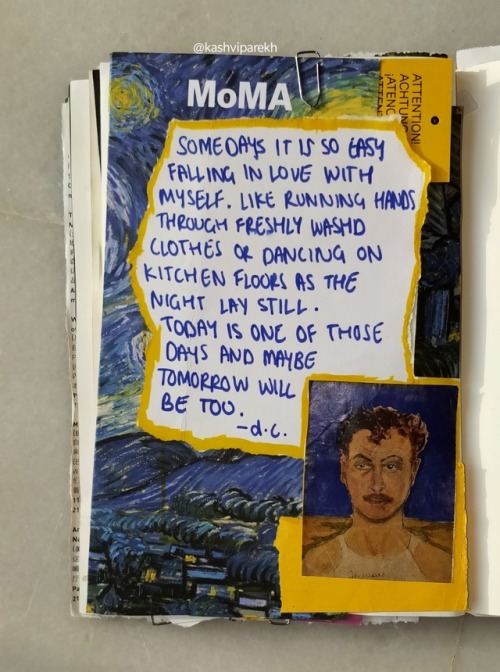 @kashviparekh
MoMA
ATTENTION!
ACHTUNG
¡ATENC
SOMEDAYS IT IS SO EASY
FALLING IN LOVE WITH
MYSELF. LIKE RUNNING HANDS
THROUGH FRESHLY WASHD
CLOTHES OR DANCING ON
KITCHEN FLOORS AS THE
NIGHT LAY STILL.
TODAY IS ONE OF THOSE
DAYS AND MAYBE
TOMORROW WILL
BE TOO.
-d.c.